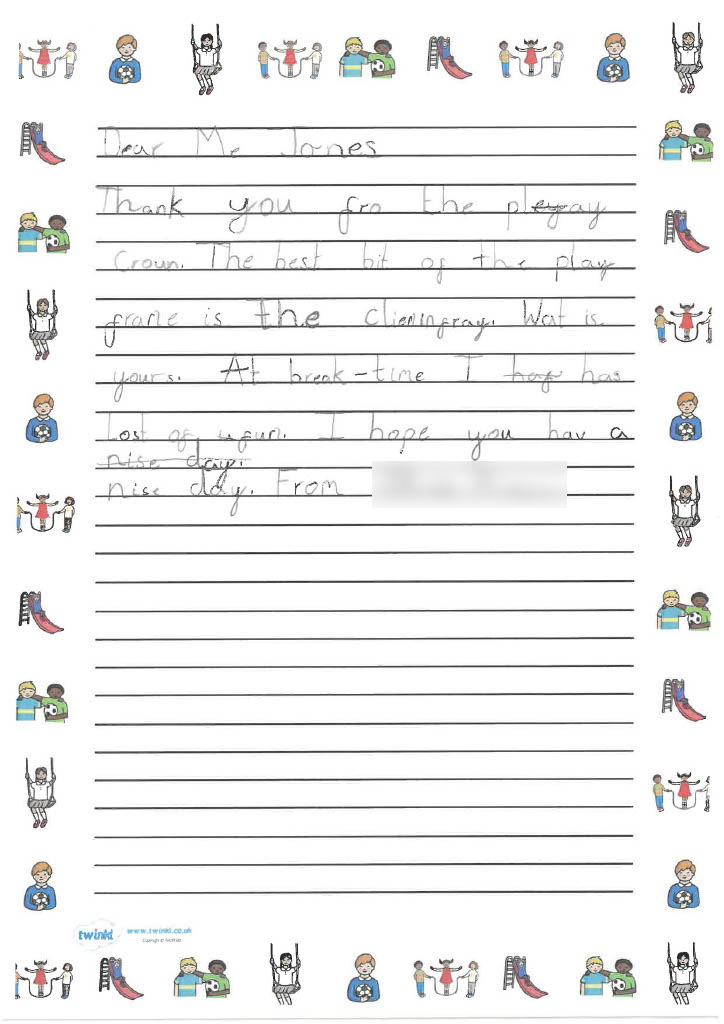 Dear Mr Jones
Thank you fro the pleyay
Croun. The best bit of the play
frame is the clieminfray. Wat is.
yours. At break-time I haf has
Lost of fun. I hope you hav a
nise day.
nise day. From
twinkl www.twinkl.co.uk